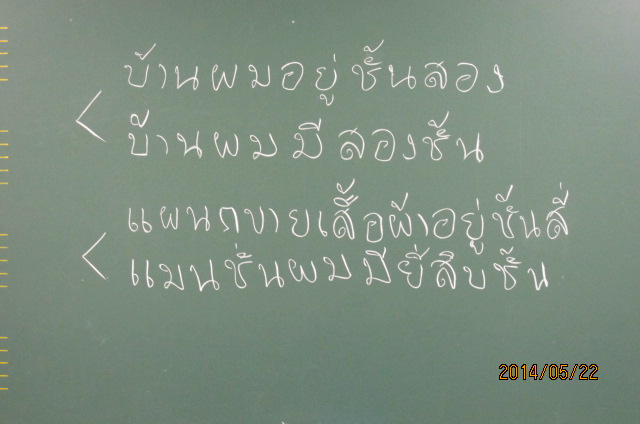 บ้านผมอยู่ชั้นสอง
บ้านผมมีสองชั้น
แผนกขายเสื้อผ้าอยู่ชั้นสี่
แมนชั่นผมมียี่สิบชั้น
2014/05/22